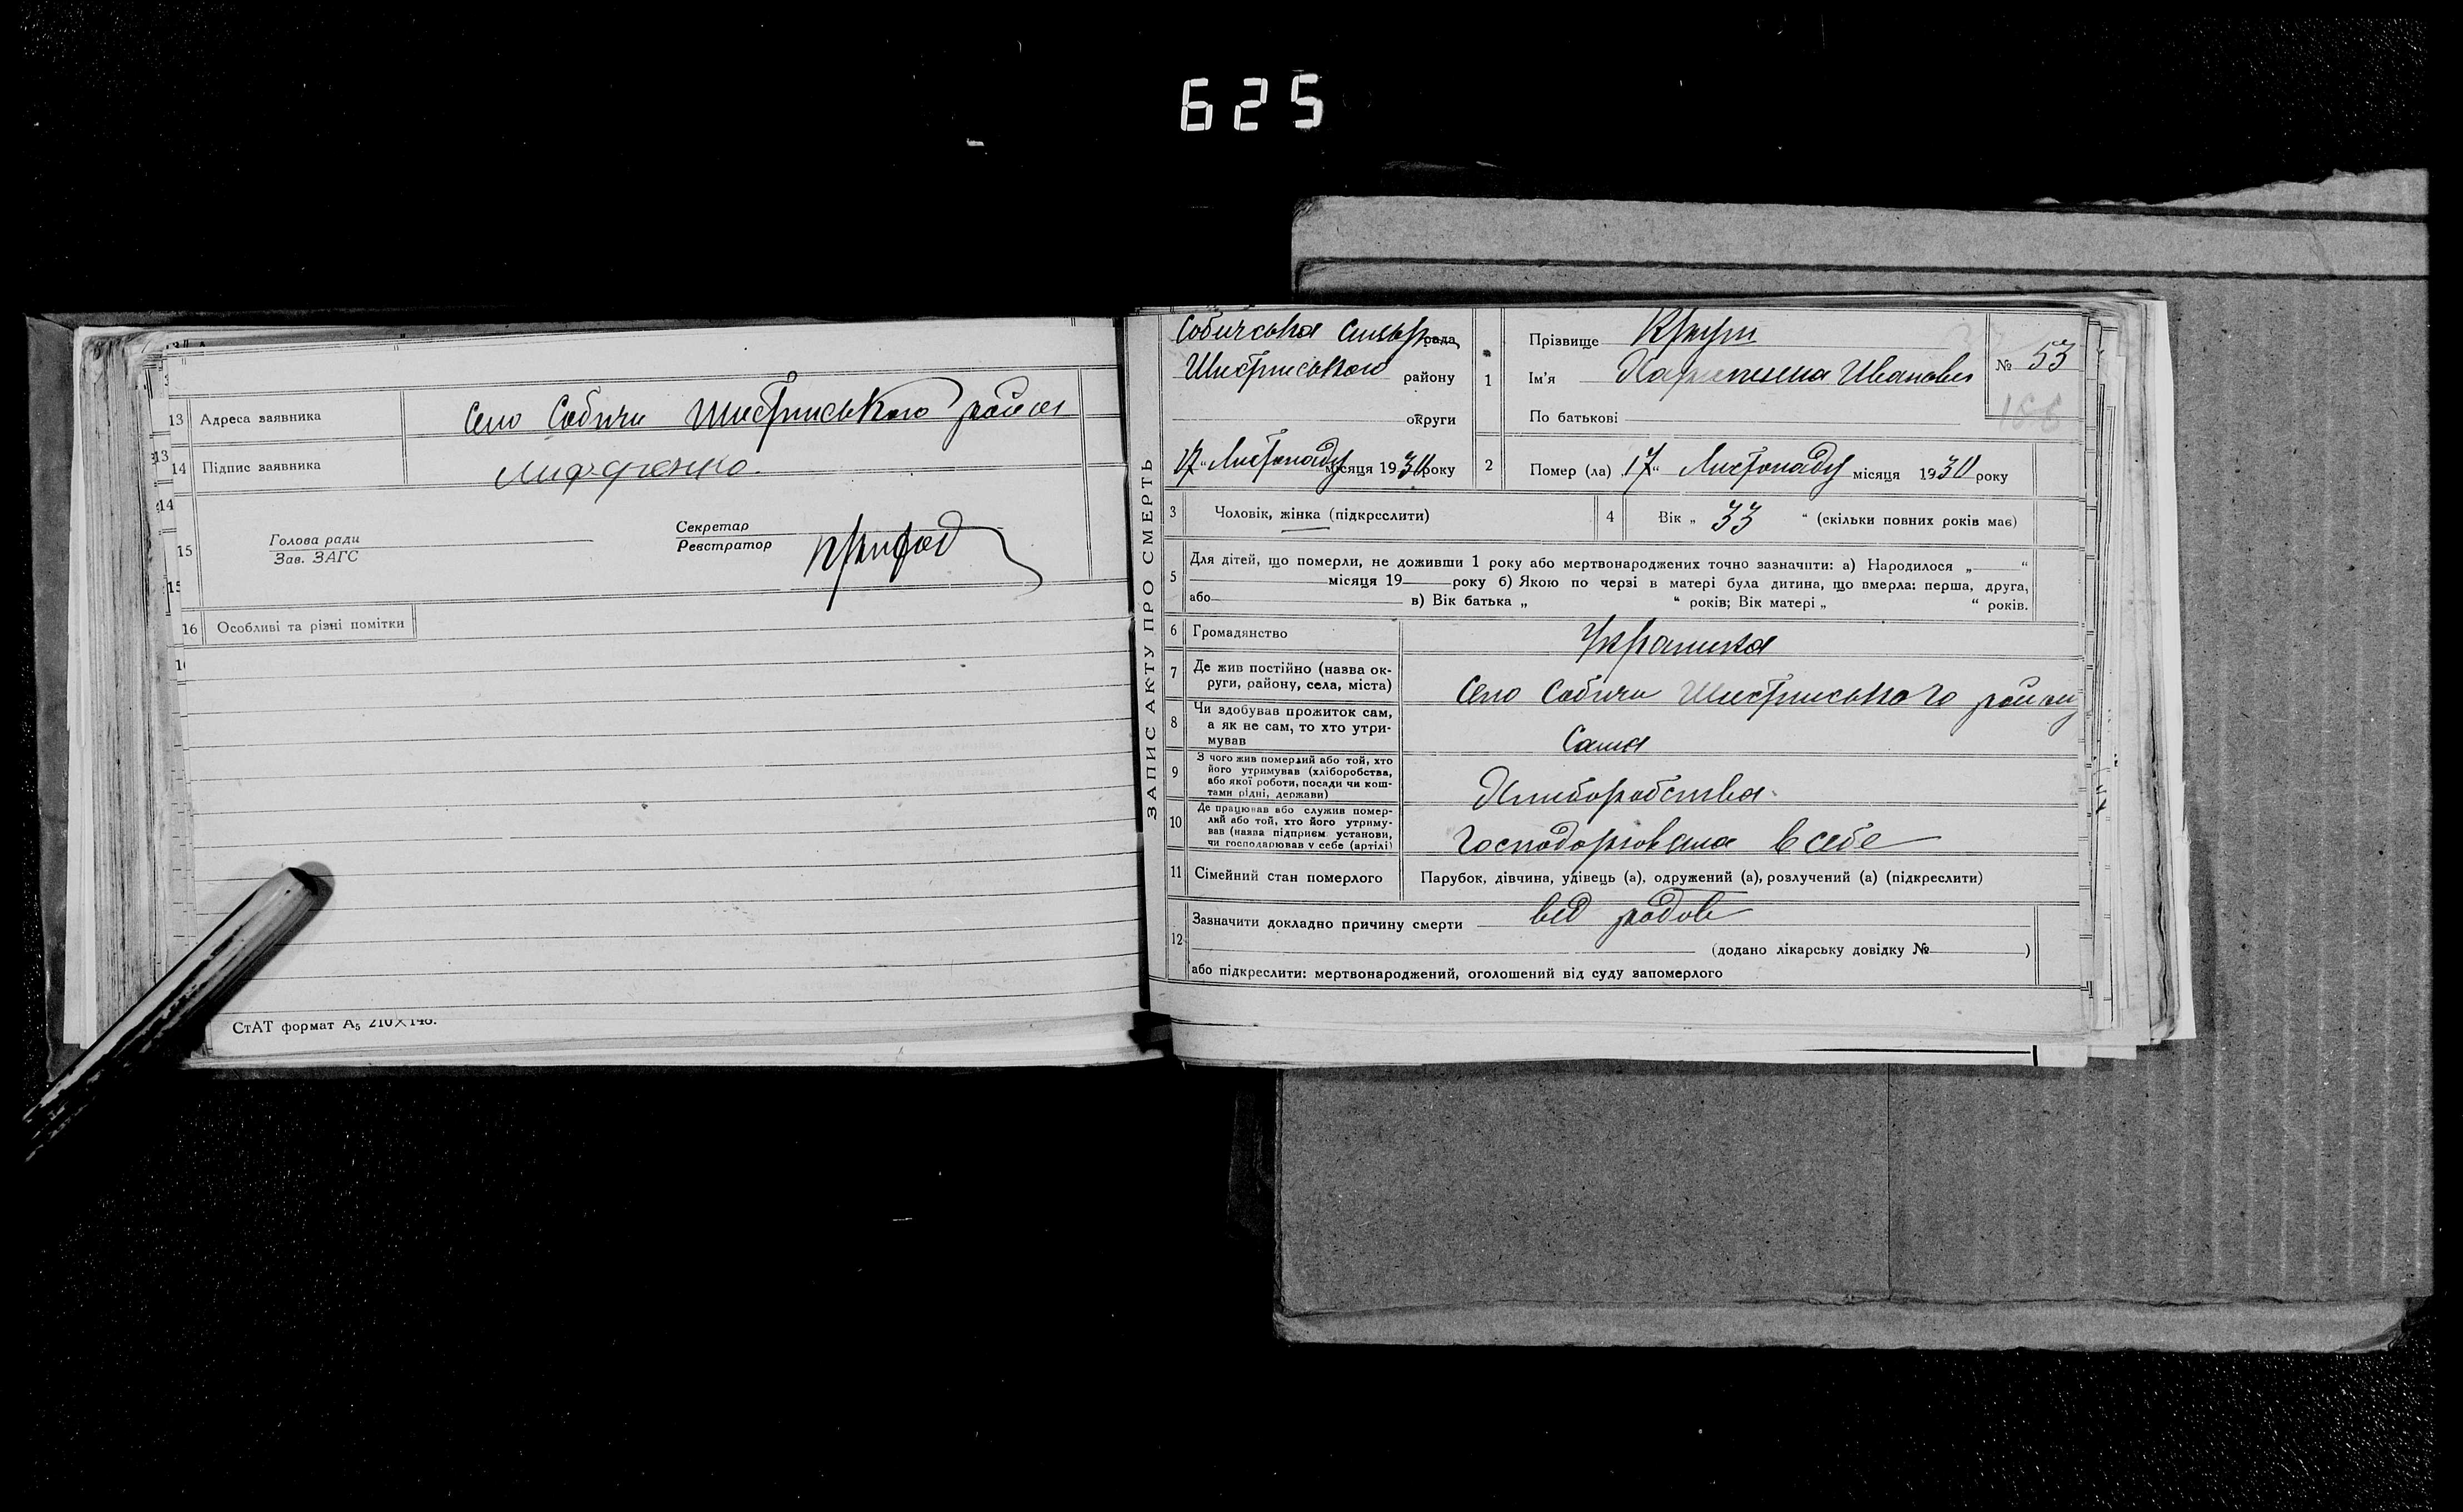 625
13 Адреса заявника Село Собичи Шистриського район
14 Підпис заявника
15 Голова ради
Зав. ЗАГС
Секретар
Реєстратор
16 Особливі та різні помітки
СтАТ формат А5 210×148.
ЗАПИС АКТУ ПРО СМЕРТЬ
Собичська сільрада
Шистриського району
округи
17 " Листопаду місяця 1930 року
1 Прізвище
Ім'я Ивановна
По батькові
№ 53
166
2 Помер (ла) 17 " Листопаду місяця 1930 року
3 Чоловік, жінка (підкреслити)
4 Вік „ 33 " (скільки повних років має)
5 Для дітей, що померли, не доживши 1 року або мертвонароджених точно зазначити: а) Народилося „ "
місяця 19 року б) Якою по черзі в матері була дитина, що вмерла: перша, друга,
або в) Вік батька „ " років; Вік матері „ " років.
6 Громадянство Украинка
7 Де жив постійно (назва ок-
руги, району, села, міста) Село Собичи Шистриського району
8 Чи здобував прожиток сам,
а як не сам, то хто утри-
мував Сама
9 З чого жив померлий або той, хто
його утримував (хліборобства,
або якої роботи, посади чи кош-
тами рідні, держави) Хлиборобства
10 Де працював або служив помер-
лий або той, хто його утриму-
вав (назва підприєм. установи,
чи господарював у себе (артілі) Господорювала в себе
11 Сімейний стан померлого Парубок, дівчина, удівець (а), одружений (а), розлучений (а) (підкреслити)
12 Зазначити докладно причину смерти від родов
(додано лікарську довідку № )
або підкреслити: мертвонароджений, оголошений від суду запомерлого